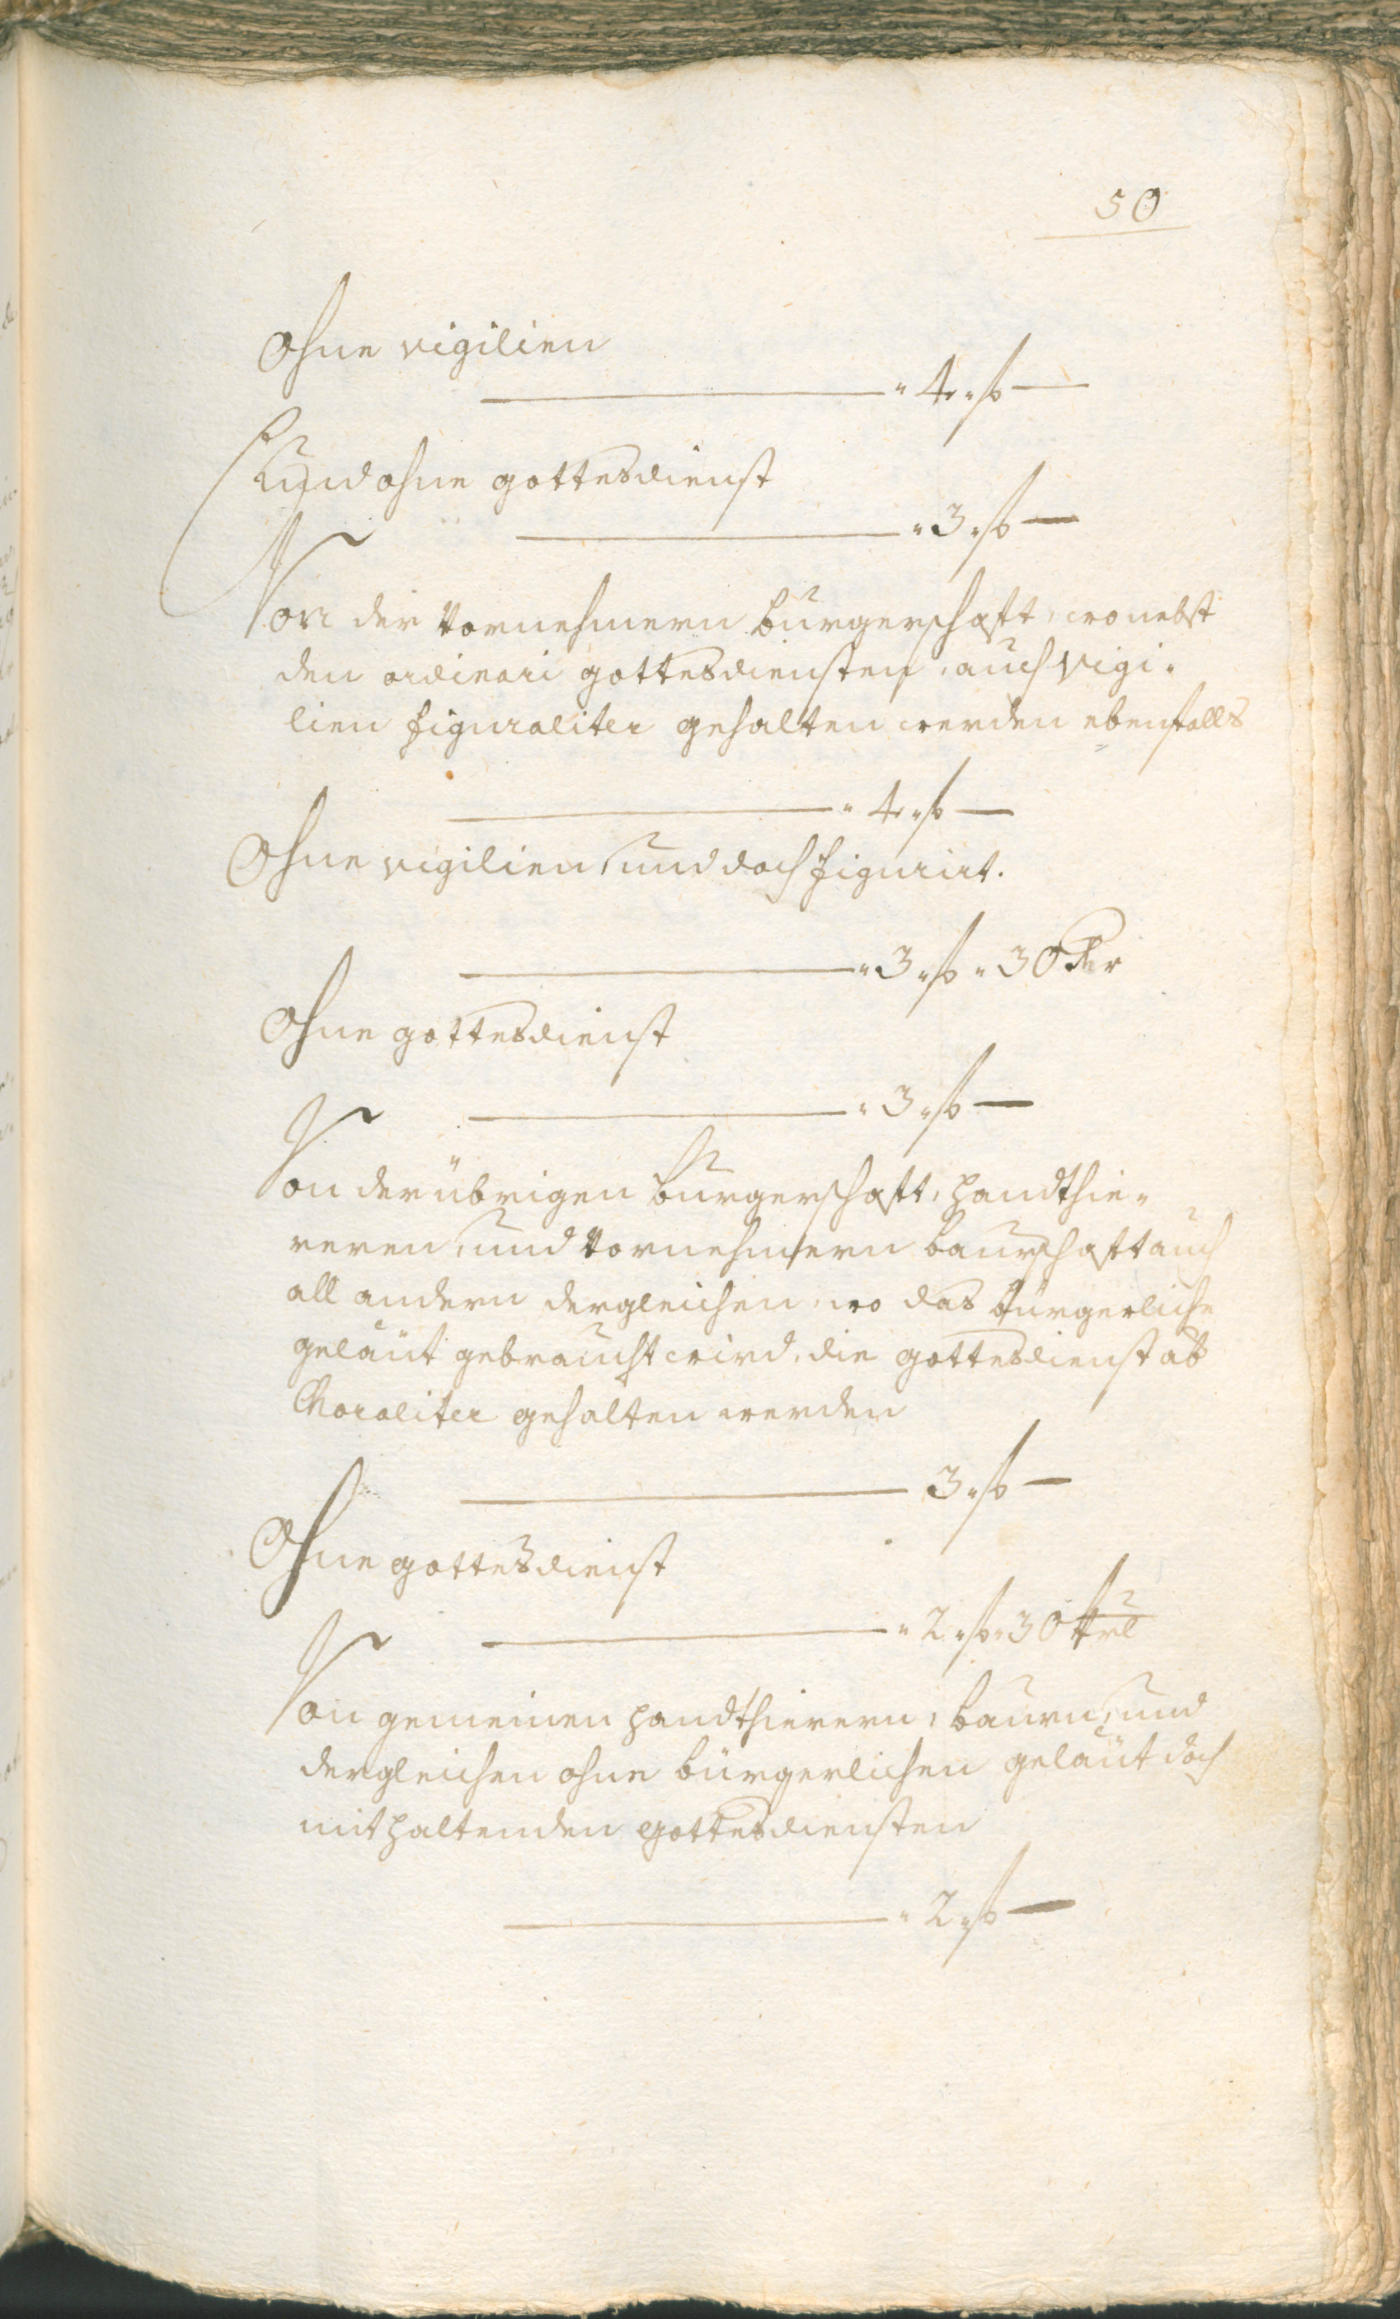 50
Ohne vigilien
" 4 " fl —
Und ohne gottesdienst
" 3 " fl —
Von der Vornehmern burgerschafft, wo nebst
den ordinari gottesdiensten, auch vigi-
lien figuraliter gehalten werden ebenfalls
" 4 " fl —
Ohne vigilien, und doch figurirt.
" 3 " fl " 30 kr
Ohne gottesdienst
" 3 " fl —
Von der übrigen burgerschafft, handthie-
reren, und Vornehmern baurschafft auch
all andern dergleichen, wo das bürgerliche
geläut gebraucht wird, die gottesdienst ab
Choraliter gehalten werden
3 " fl —
Ohne gottesdienst
" 2 " fl " 30
Von gemeinen handthierern, baurn, und
dergleichen ohne bürgerlichen geläut doch
mit haltenden gottesdiensten
" 2 " fl —